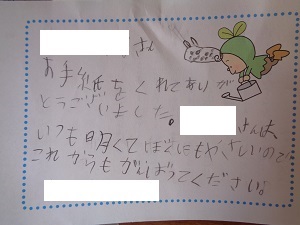 さん
お手紙をくれてありが
とうございました。 さんは
いつも明くてぼくにもやさしいので
これからもがんばってください。